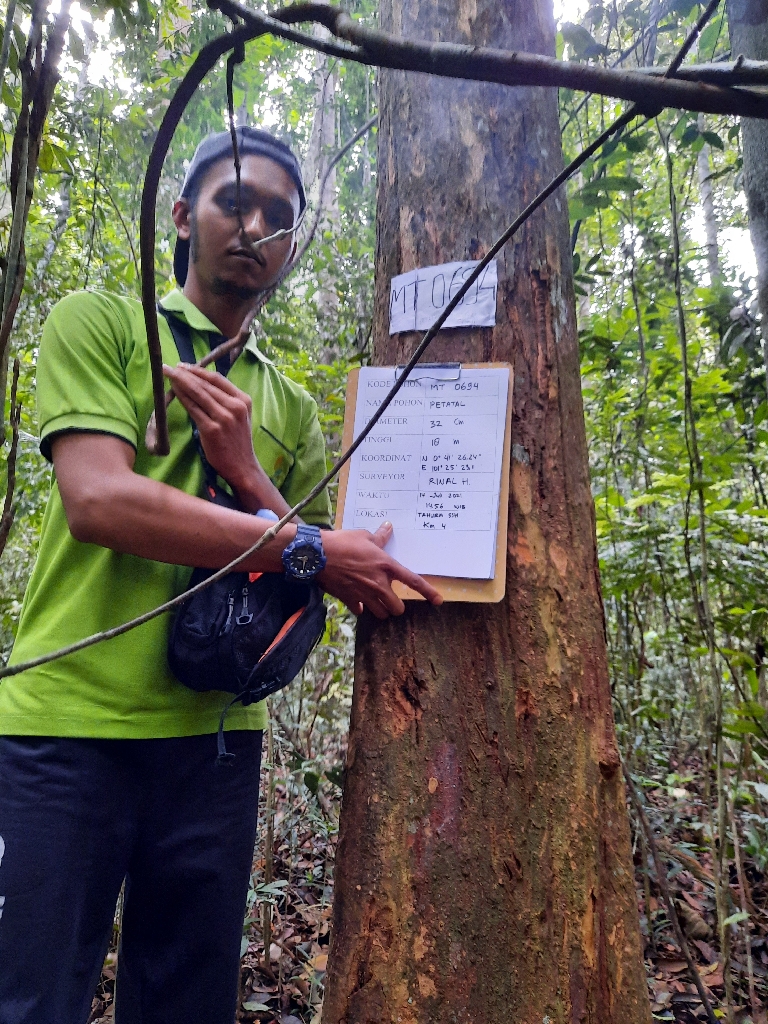 MT 0694
KODE POHON MT 0694
NAMA POHON PETATAL
DIAMETER 32 Cm
TINGGI 18 m
KOORDINAT N 0° 41' 26.24"
E 101° 25' 23.1
SURVEYOR RINAL H.
WAKTU 14 - Juli 2021
14.56 WIB
LOKASI TAHURA SSH
Km 4